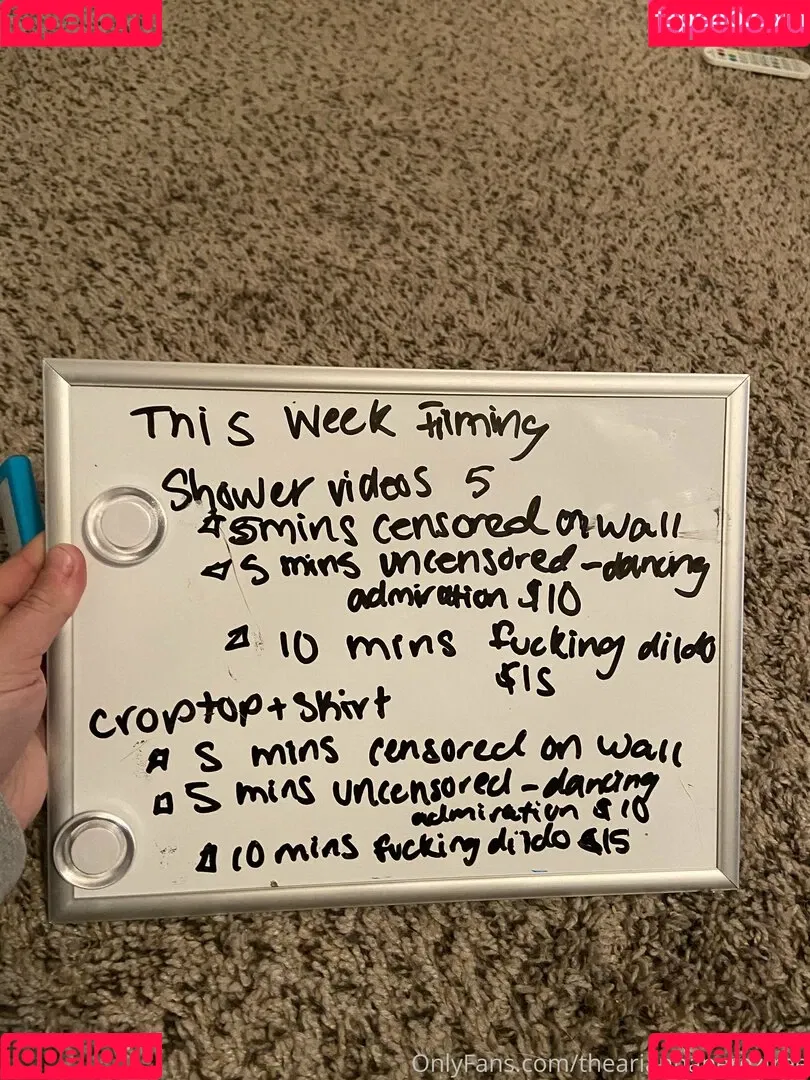 fapello.ru fapello.ru
This Week Filming
Shower videos 5
5 mins censored on wall
5 mins uncensored - dancing
admiration $10
10 mins fucking dildo
$15
croptop + skirt
5 mins censored on wall
5 mins uncensored - dancing
admiration $10
10 mins fucking dildo $15
fapello.ru fapello.ru